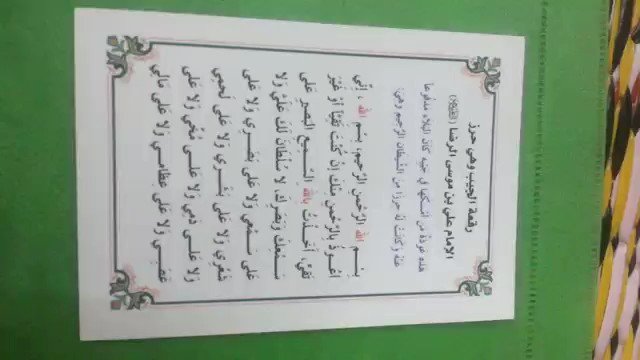 رقعة الجيب وهي حرز
الإمام علي بن موسى الرضا
هذه عوذة من أمسكها في جيبه كان البلاء مدفوعا
عنه وكانت له حرزا من الشيطان الرجيم وهي:
بِسْمِ اللهِ الرَّحْمنِ الرَّحِيمِ، بِسْمِ اللهِ، إِنِّي
أَعُوذُ بِالرَّحْمنِ مِنْكَ إِنْ كُنْتَ تَقِيّاً أَوْ غَيْرَ
تَقِيٍّ، أَخَذْتُ بِاللهِ السَّمِيعِ البَصِيرِ عَلى
سَمْعِكَ وَبَصَرِكَ، لا سُلْطانَ لَكَ عَلَيَّ وَلا
عَلى سَمْعي وَلا عَلى بَصَرِي وَلا عَلى
شَعْرِي وَلا عَلى بَشَرِي وَلا عَلى لَحمِي
وَلا عَلى دَمِي وَلا عَلى مُخِّي وَلا عَلى
عَصَبِي وَلا عَلى عِظامِي وَلا عَلى مالِي